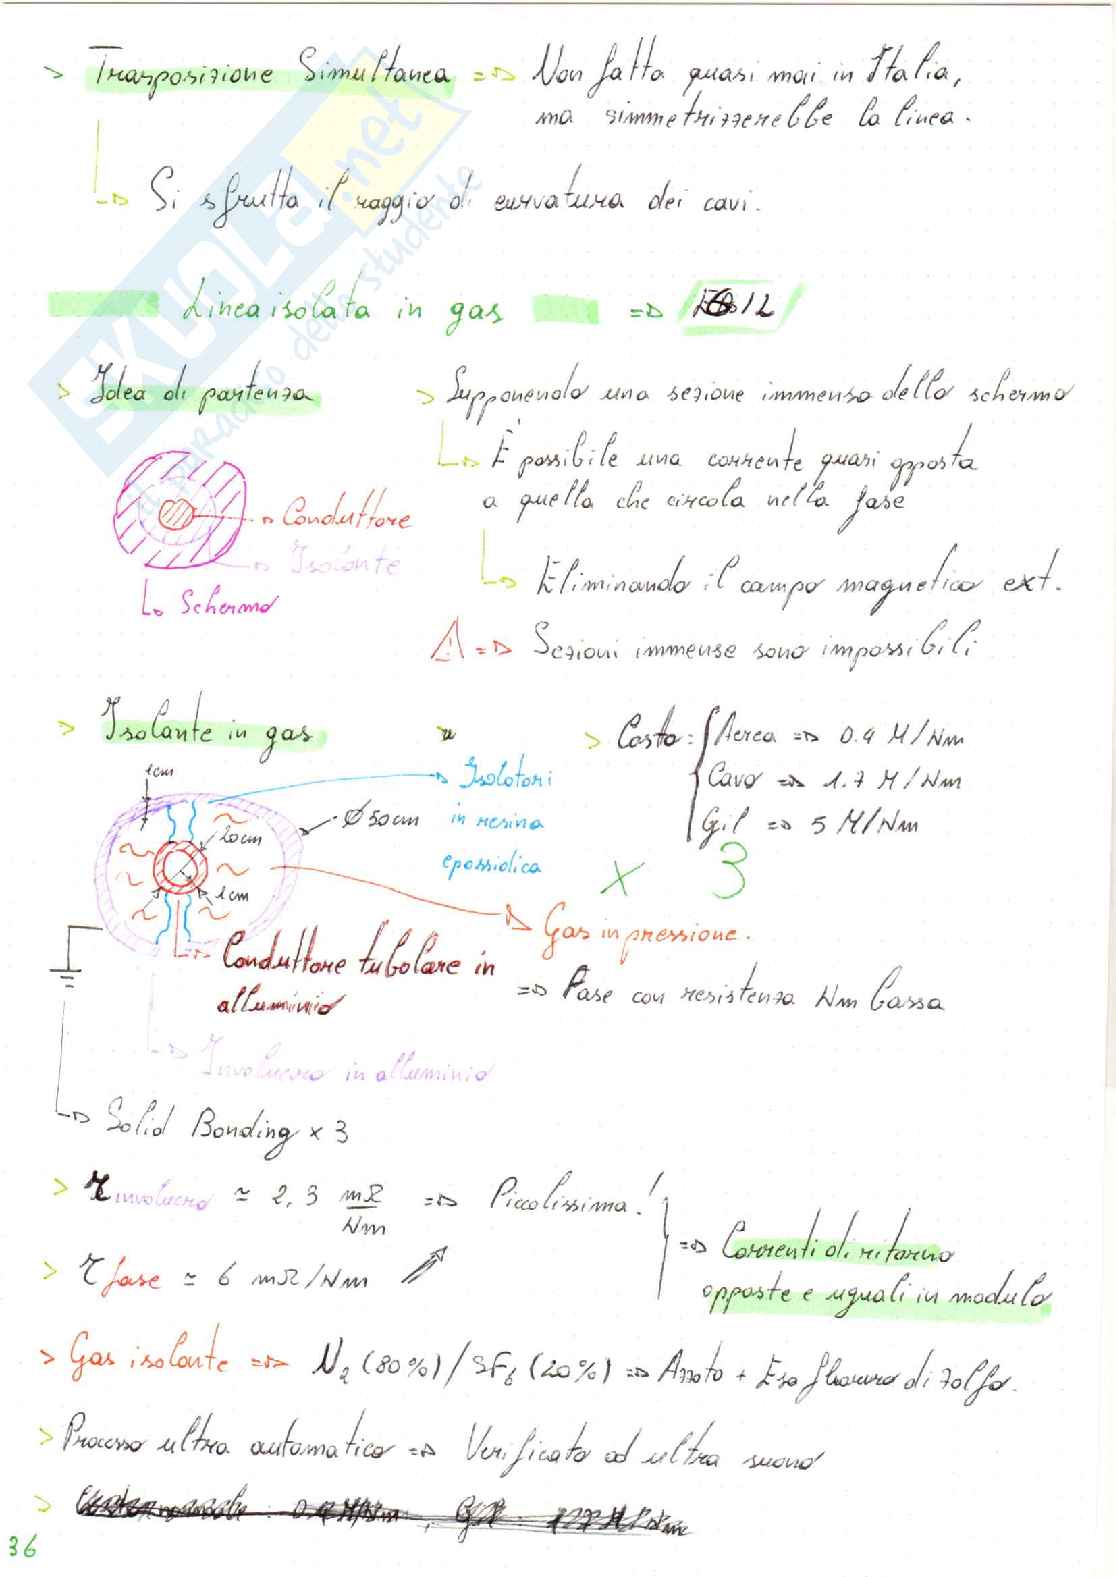 > Trasposizione Simultanea => Non fatta quasi mai in Italia,
ma simmetrizzerebbe la linea.
Si sfrutta il raggio di curvatura dei cavi.
Linea isolata in gas => 12
> Idea di partenza
> Supponendo una sezione immensa dello schermo
È possibile una corrente quasi opposta
a quella che circola nella fase
Eliminando il campo magnetico ext.
Conduttore
Isolante
Schermo
⚠ => Sezioni immense sono impossibili
> Isolante in gas
> Costo: { Aerea => 0.4 M/Km
Cavo => 1.7 M/Km
Gil => 5 M/Km
x 3
1cm
Isolatori
in resina
epossidica
Ø 50cm
20cm
1cm
Gas in pressione.
Conduttore tubolare in
alluminio
=> Fase con resistenza Km bassa
Involucro in alluminio
Solid Bonding x 3
> r involucro ≃ 2,3 mΩ/Km => Piccolissima!
> r fase ≃ 6 mΩ/Km
=> Correnti di ritorno
opposte e uguali in modulo
> Gas isolante => N2 (80%) / SF6 (20%) => Azoto + Esafluoruro di zolfo.
> Processo ultra automatico => Verificato ad ultra suono
36
SKUOLA.net
il paradiso dello studente